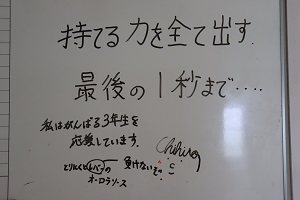 持てる力を全て出す.
最後の1秒まで....
私はがんばる3年生を
応援しています.
Chihiro
負けないぞ
オーロラソース